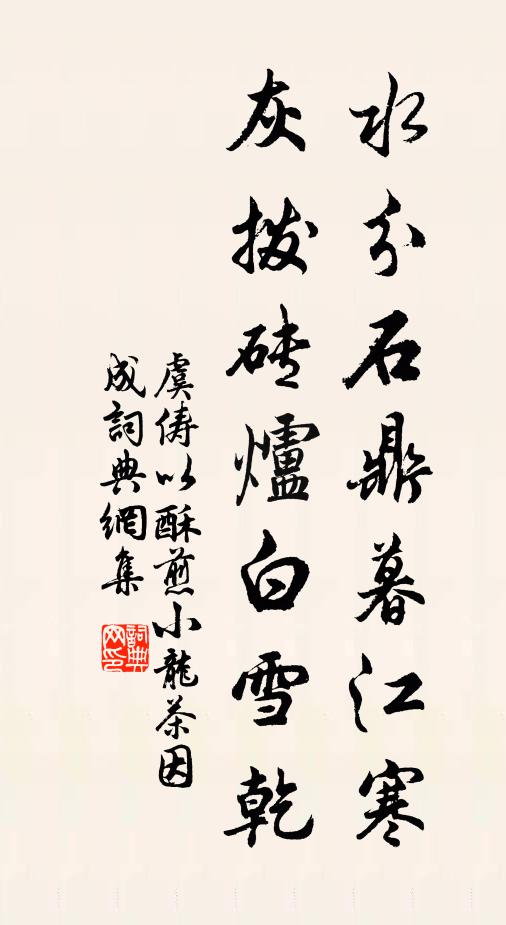 水分石鼎暮江寒
灰撥磚爐白雪乾
虞儔以酥煎小龍茶因
成詞典網集
詞典
网印